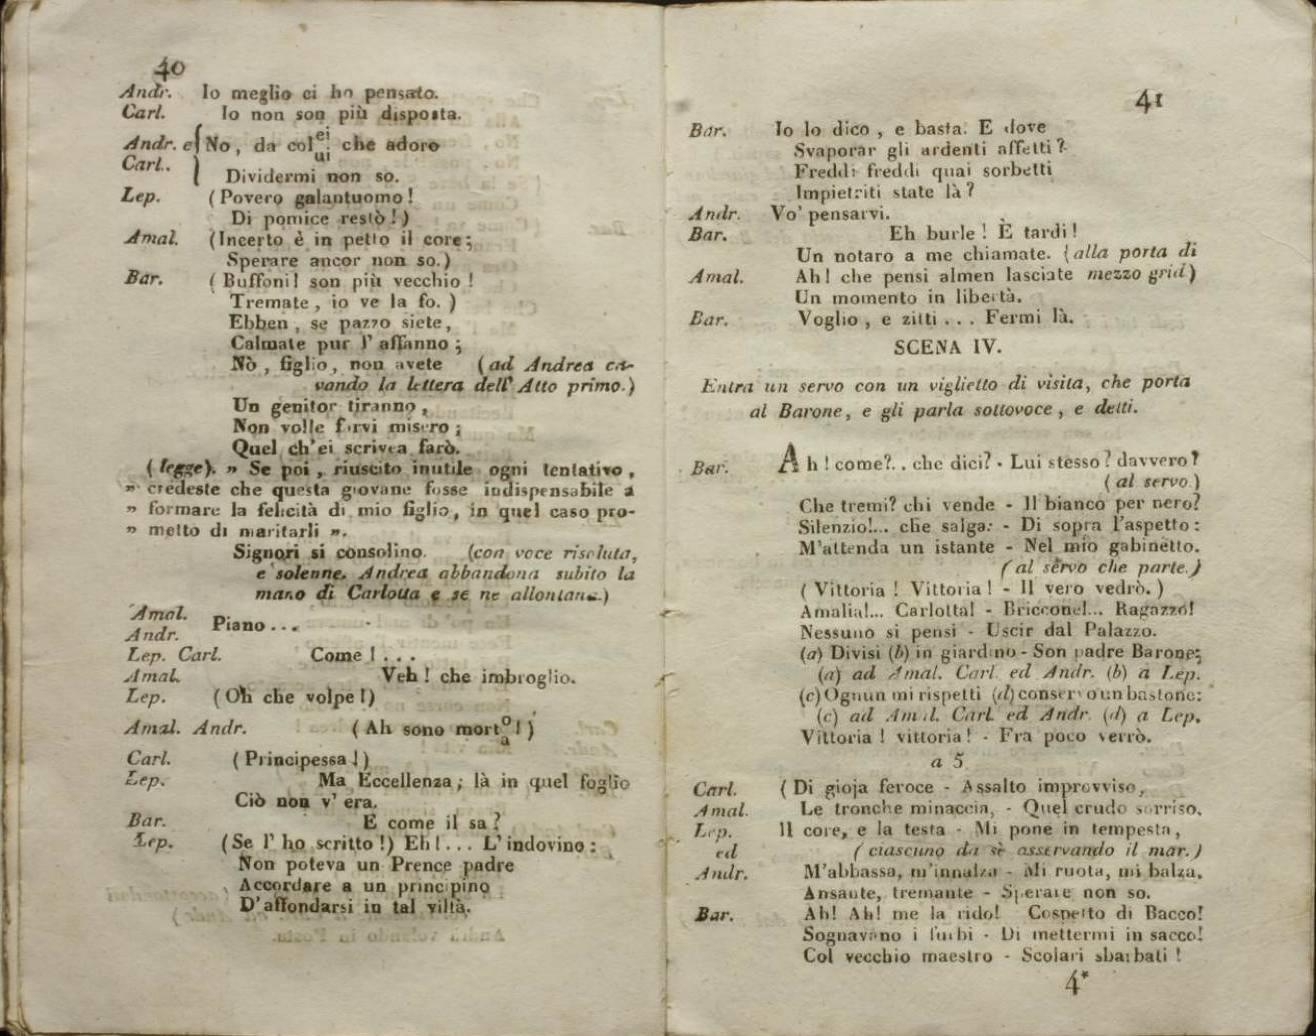 40
Andr. Io meglio ci ho pensato.
Carl. Io non son più disposta.
Andr. e { No, da colei che adoro
Carl. } ui
Dividermi non so.
Lep. (Povero galantuomo!
Di pomice restò!)
Amal. (Incerto è in petto il core;
Sperare ancor non so.)
Bar. (Buffoni! son più vecchio!
Tremate, io ve la fo.)
Ebben, se pazzo siete,
Calmate pur l'affanno;
Nò, figlio, non avete (ad Andrea ca-
vando la lettera dell'Atto primo.)
Un genitor tiranno,
Non volle farvi misero;
Quel ch'ei scrivea farò.
(legge). » Se poi, riuscito inutile ogni tentativo,
» credeste che questa giovane fosse indispensabile a
» formare la felicità di mio figlio, in quel caso pro-
» metto di maritarli ».
Signori si consolino. (con voce risoluta,
e solenne. Andrea abbandona subito la
mano di Carlotta e se ne allontana.)
Amal.
Andr. Piano...
Lep. Carl. Come!...
Amal. Veh! che imbroglio.
Lep. (Oh che volpe!)
Amal. Andr. (Ah sono morto!)
a
Carl. (Principessa!)
Lep. Ma Eccellenza; là in quel foglio
Ciò non v'era.
Bar. E come il sa?
Lep. (Se l'ho scritto!) Eh!... L'indovino:
Non poteva un Prence padre
Accordare a un principino
D'affondarsi in tal viltà.
41
Bar. Io lo dico, e basta. E dove
Svaporar gli ardenti affetti?
Freddi freddi quai sorbetti
Impietriti state là?
Andr. Vo' pensarvi.
Bar. Eh burle! È tardi!
Un notaro a me chiamate. (alla porta di
Amal. Ah! che pensi almen lasciate mezzo grid)
Un momento in libertà.
Bar. Voglio, e zitti... Fermi là.
SCENA IV.
Entra un servo con un viglietto di visita, che porta
al Barone, e gli parla sottovoce, e detti.
Bar. Ah! come?.. che dici? - Lui stesso? davvero?
(al servo)
Che tremi? chi vende - Il bianco per nero?
Silenzio!... che salga: - Di sopra l'aspetto:
M'attenda un istante - Nel mio gabinetto.
(al servo che parte.)
(Vittoria! Vittoria! - Il vero vedrò.)
Amalia!... Carlotta! - Briccone!... Ragazzo!
Nessuno si pensi - Uscir dal Palazzo.
(a) Divisi (b) in giardino - Son padre Barone;
(a) ad Amal. Carl. ed Andr. (b) a Lep.
(c) Ognun mi rispetti (d) conservo un bastone:
(c) ad Amal. Carl. ed Andr. (d) a Lep.
Vittoria! vittoria! - Fra poco verrò.
a 5
Carl. (Di gioja feroce - Assalto improvviso,
Amal. Le tronche minaccia, - Quel crudo sorriso,
Lep. Il core, e la testa - Mi pone in tempesta,
ed (ciascuno da sè osservando il mar.)
Andr. M'abbassa, m'innalza - Mi ruota, mi balza,
Ansante, tremante - Sperare non so.
Bar. Ah! Ah! me la rido! Cospetto di Bacco!
Sognavano i furbi - Di mettermi in sacco!
Col vecchio maestro - Scolari sbarbati!
4*